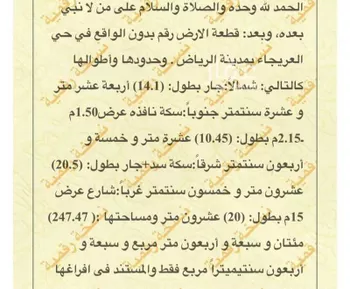 الحمد لله وحده والصلاة والسلام على من لا نبي
بعده، وبعد: قطعة الارض رقم بدون الواقع في حي
العريجاء بمدينة الرياض . وحدودها وأطوالها
كالتالي: شمالاً:جار بطول: (14.1) أربعة عشر متر
و عشرة سنتمتر جنوباً:سكة نافذه عرض1.50م
-2.15م بطول: (10.45) عشرة متر و خمسة و
أربعون سنتمتر شرقاً:سكة سد+جار بطول: (20.5)
عشرون متر و خمسون سنتمتر غرباً:شارع عرض
15م بطول: (20) عشرون متر ومساحتها :(247.47)
مئتان و سبعة و أربعون متر مربع و سبعة و
أربعون سنتيميترا مربع فقط والمستند في افراغها